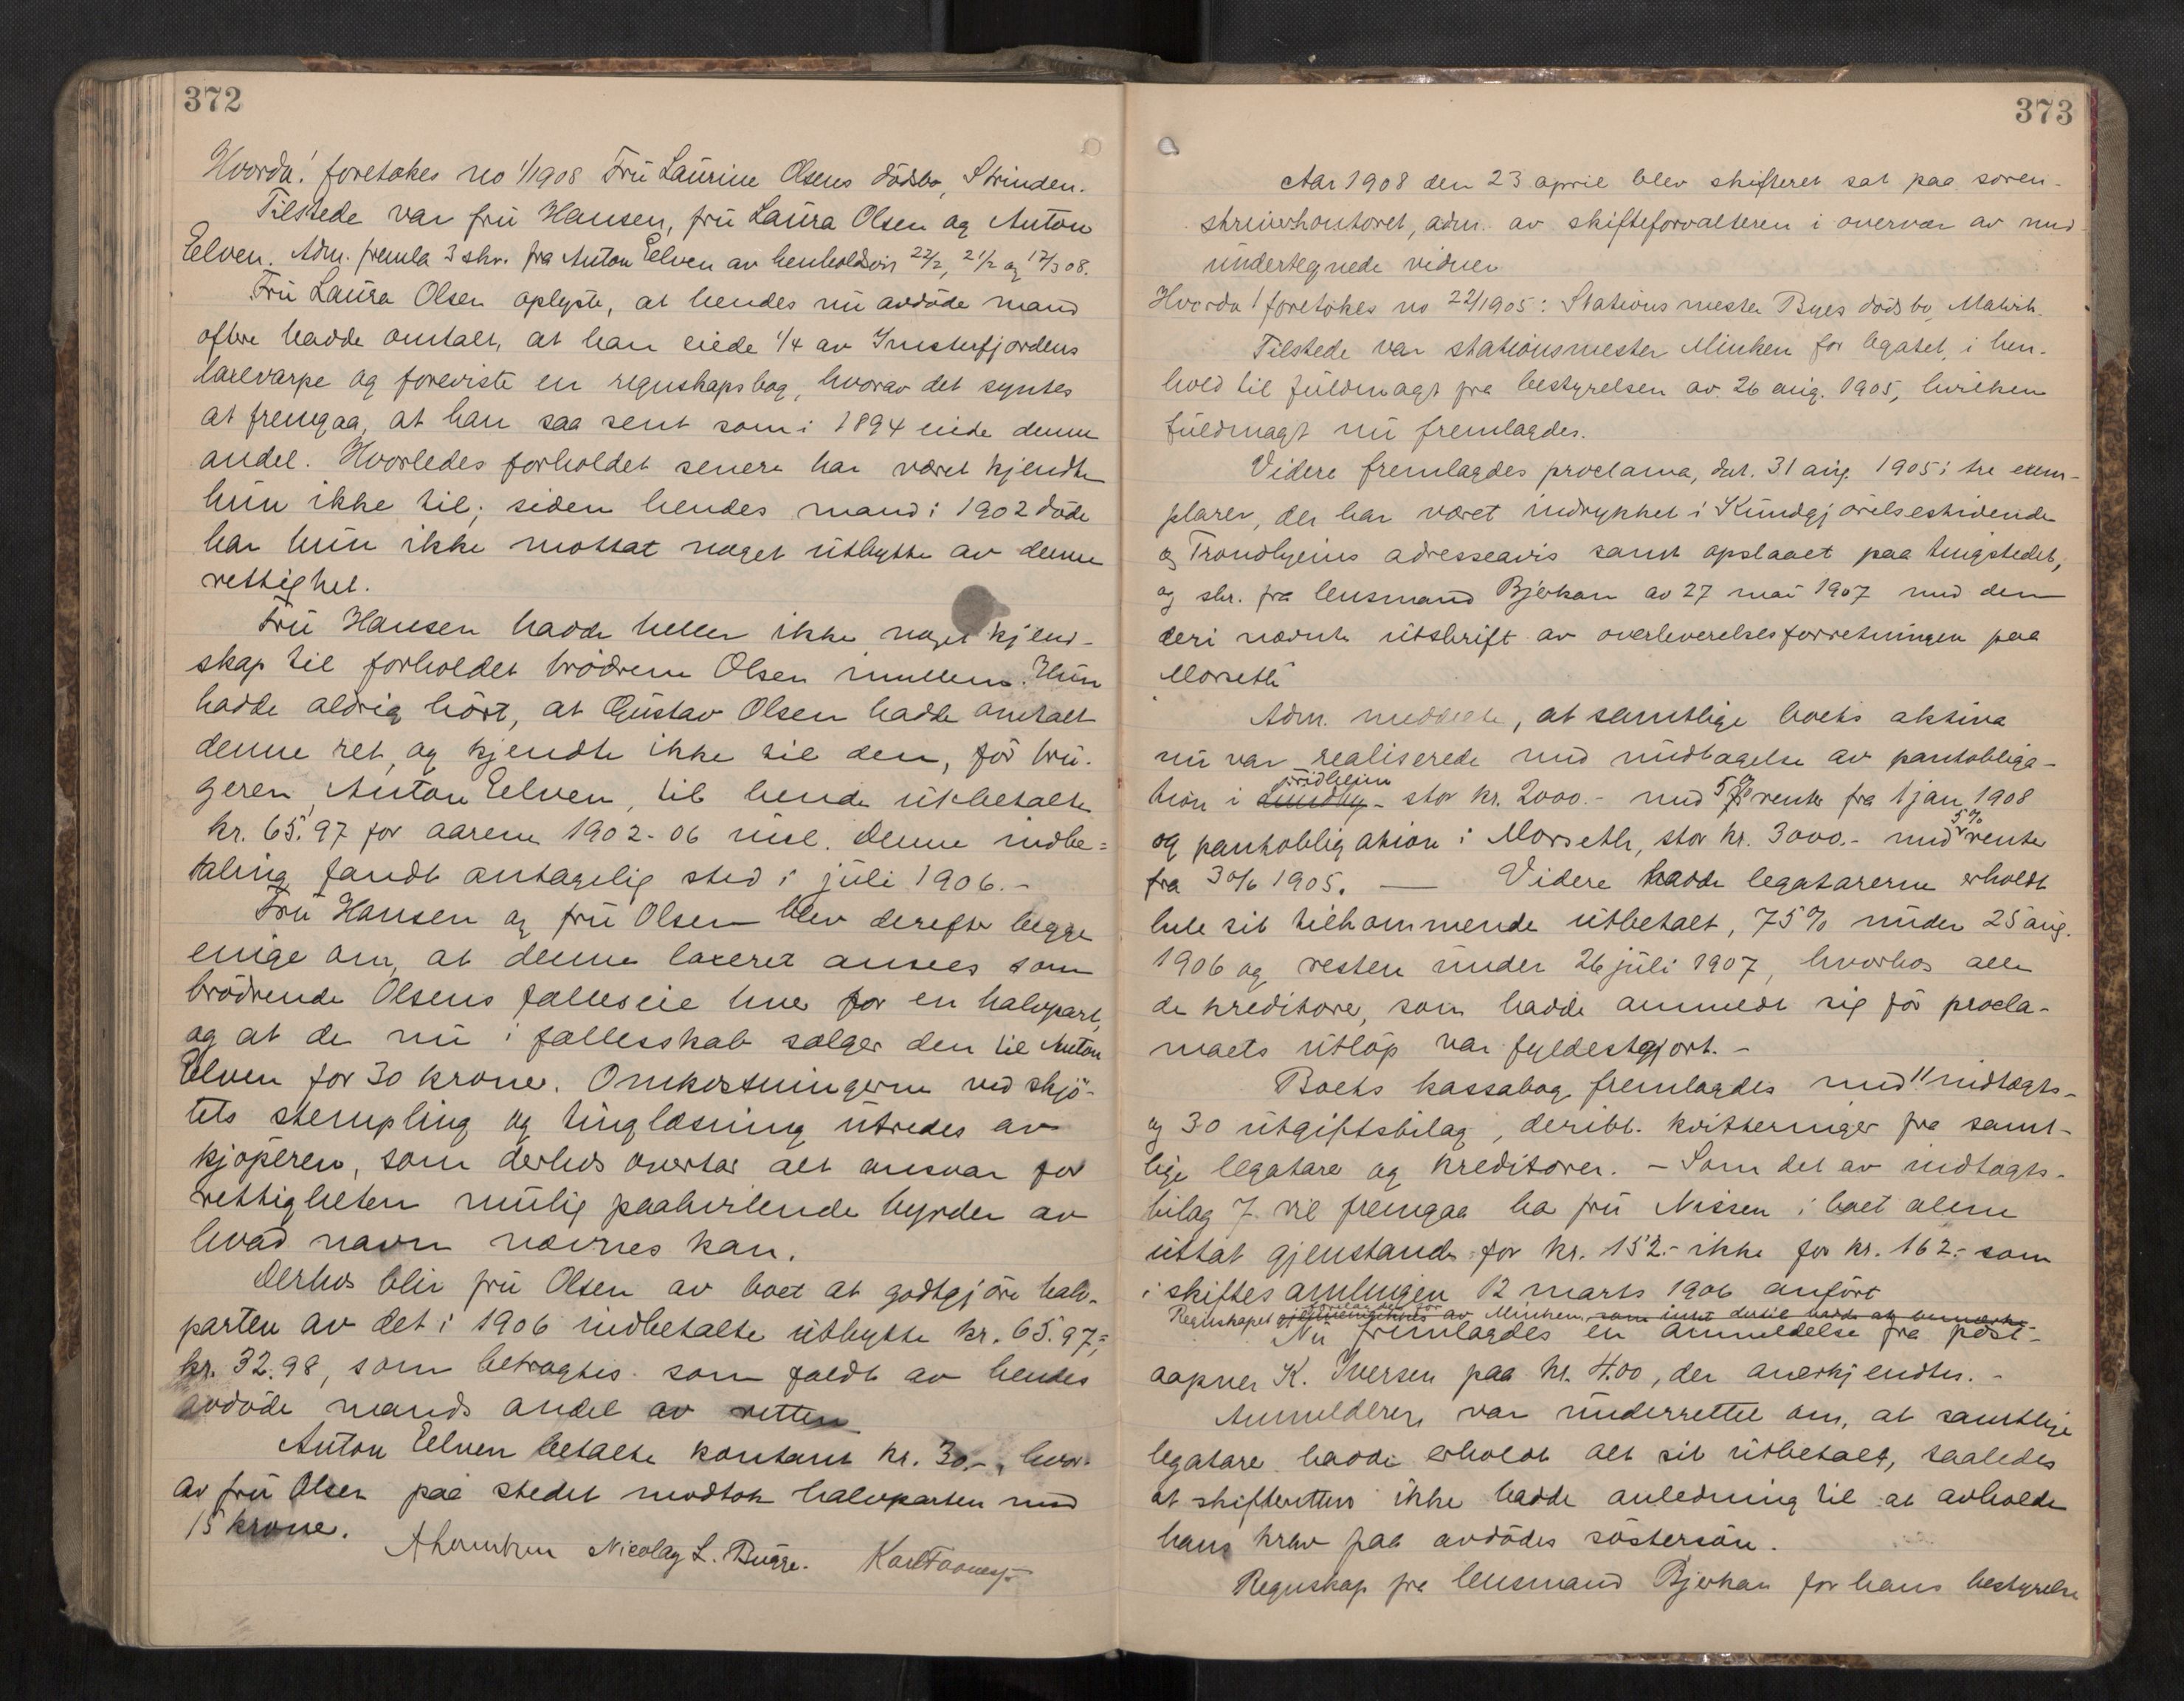 372
Hvorda! foretokes no 1/1908 Fru Laurine Olsens dödsbo, Strinden.
Tilstede var fru Hansen, fru Laura Olsen og Anton
Eelven. Adm. fremla 3 skr. fra Anton Eelven av henholdsvis 22/2, 21/2 og 17/3 08.
Fru Laura Olsen oplyste, at hendes nu avdöde mand
oftere hadde omtalt, at han eiede 1/4 av Imsterfjordens
laxevarpe og foreviste en regnskapsbog, hvorav det syntes
at fremgaa, at han saa sent som i 1894 eiede denne
andel. Hvorledes forholdet senere har været kjendte
hun ikke til; siden hendes mand i 1902 döde
har hun ikke mottat noget utbytte av denne
rettighet.
Fru Hansen hadde heller ikke noget kjend-
skap til forholdet brödrene Olsen imellem. Hun
hadde aldrig hört, at Gustav Olsen hadde omtalt
denne ret, og kjendte ikke til den, för bru-
geren, Anton Eelven, til hende utbetalte
kr. 65.97 for aarene 1902-06 incl. Denne indbe-
taling fandt antagelig sted i juli 1906.-
Fru Hansen og fru Olsen blev derefter begge
enige om, at denne laxeret ansees som
brödrende Olsens fælleseie hver for en halvpart,
og at de nu i fællesskab sælger den til Anton
Elven for 30 kroner. Omkostningerne ved skjö-
tets stempling og tinglæsning utredes av
kjöperen, som derhos overtar alt ansvar for
rettigheten mulig paahvilende byrder av
hvad navn nævnes kan.
Derhos blir fru Olsen av boet at godtgjöre halv-
parten av det i 1906 indbetalte utbytte kr. 65.97,=
kr. 32.98, som betragtes som faldt av hendes
avdöde mands andel av retten
Anton Eelven betalte kontant kr. 30.-, hvor-
av fru Olsen paa stedet modtok halvparten med
15 kroner.
Nicolay L. Bugge. Karl
373
Aar 1908 den 23 april blev skifteret sat paa soren-
skriverkontoret, adm. av skifteforvalteren i overvær av med-
undertegnede vidner
Hvorda! foretokes no 22/1905: Stationsmester Byes dödsbo, Malvik.
Tilstede var stationsmester Minken for legatet, i hen-
hold til fuldmagt fra bestyrelsen av 26 aug. 1905, hvilken
fuldmagt nu fremlagdes.
Videre fremlagdes proclama, dat. 31 aug. 1905 i tre exem-
plarer, der har været indrykket i Kundgjörelsestidende
og Trondhjems adresseavis samt opslaaet paa tingstedet,
og skr. fra lensmand Bjerkan av 27 mai 1907 med den
deri nævnte utskrift av overleverelsesforretningen paa
Morseth
Adm. meddelte, at samtlige boets aktiva
nu var realiserede med undtagelse av pantobliga-
tion i Fridheim stor kr. 2000.- med 5% renter fra 1 jan. 1908
og pantobligation i Morseth, stor kr. 3000.- med 5% renter
fra 30/6 1905. — Videre hadde legatarerne erholdt
hele sit tilkommende utbetalt, 75% under 25 aug.
1906 og resten under 26 juli 1907, hvorhos alle
de kreditorer, som hadde anmeldt sig för procla-
maets utlöp var fyldestgjort.-
Boets kassabog fremlagdes med 11 indtægts-
og 30 utgiftsbilag, deribl. kvitteringer fra samt-
lige legatarer og kreditorer. - Som det av indtægts-
bilag 7 vil fremgaa ha fru Nissen i boet alene
uttat gjenstande for kr. 152.- ikke for kr. 162.- som
i skiftesamlingen 12 marts 1906 anfört
Regnskapet av Minken, som intet dertil hadde at bemerke
Nu fremlagdes en anmeldelse fra post-
aapner K. Iversen paa kr. 4.00, der anerkjendtes.-
Anmelderen var underrettet om, at samtlige
legatarer hadde erholdt alt sit utbetalt, saaledes
at skifteretten ikke hadde anledning til at avholde
hans krav paa avdödes söstersön.
Regnskap fra lensmand Bjerkan for hans bestyrelse